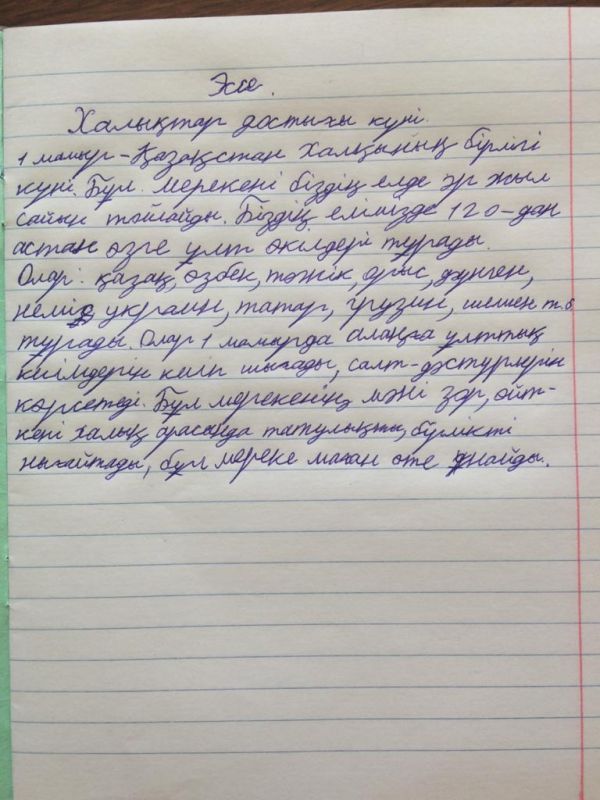 Эссе.
Халықтар достығы күні.
1 мамыр - Қазақстан халқының бірлігі
күні. Бұл. мерекені біздің елде әр жыл
сайын тойлайды. Біздің елімізде 120-дан
астан өзге ұлт өкілдері тұрады.
Олар: қазақ, өзбек, тәжік, орыс, дүнген,
неміс, украин, татар, грузин, шешен т.б
тұрады. Олар 1 мамырда алаңға ұлттық
киімдерін киіп шығады, салт-дәстүрлерін
көрсетеді. Бұл мерекенің мәні зор, өйт-
кені халық арасында татулықты, бірлікті
нығайтады, бұл мереке маған өте ұнайды.